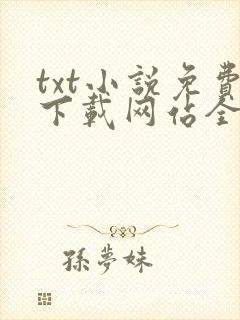 txt小説免費
下載网佔全
孫夢妹